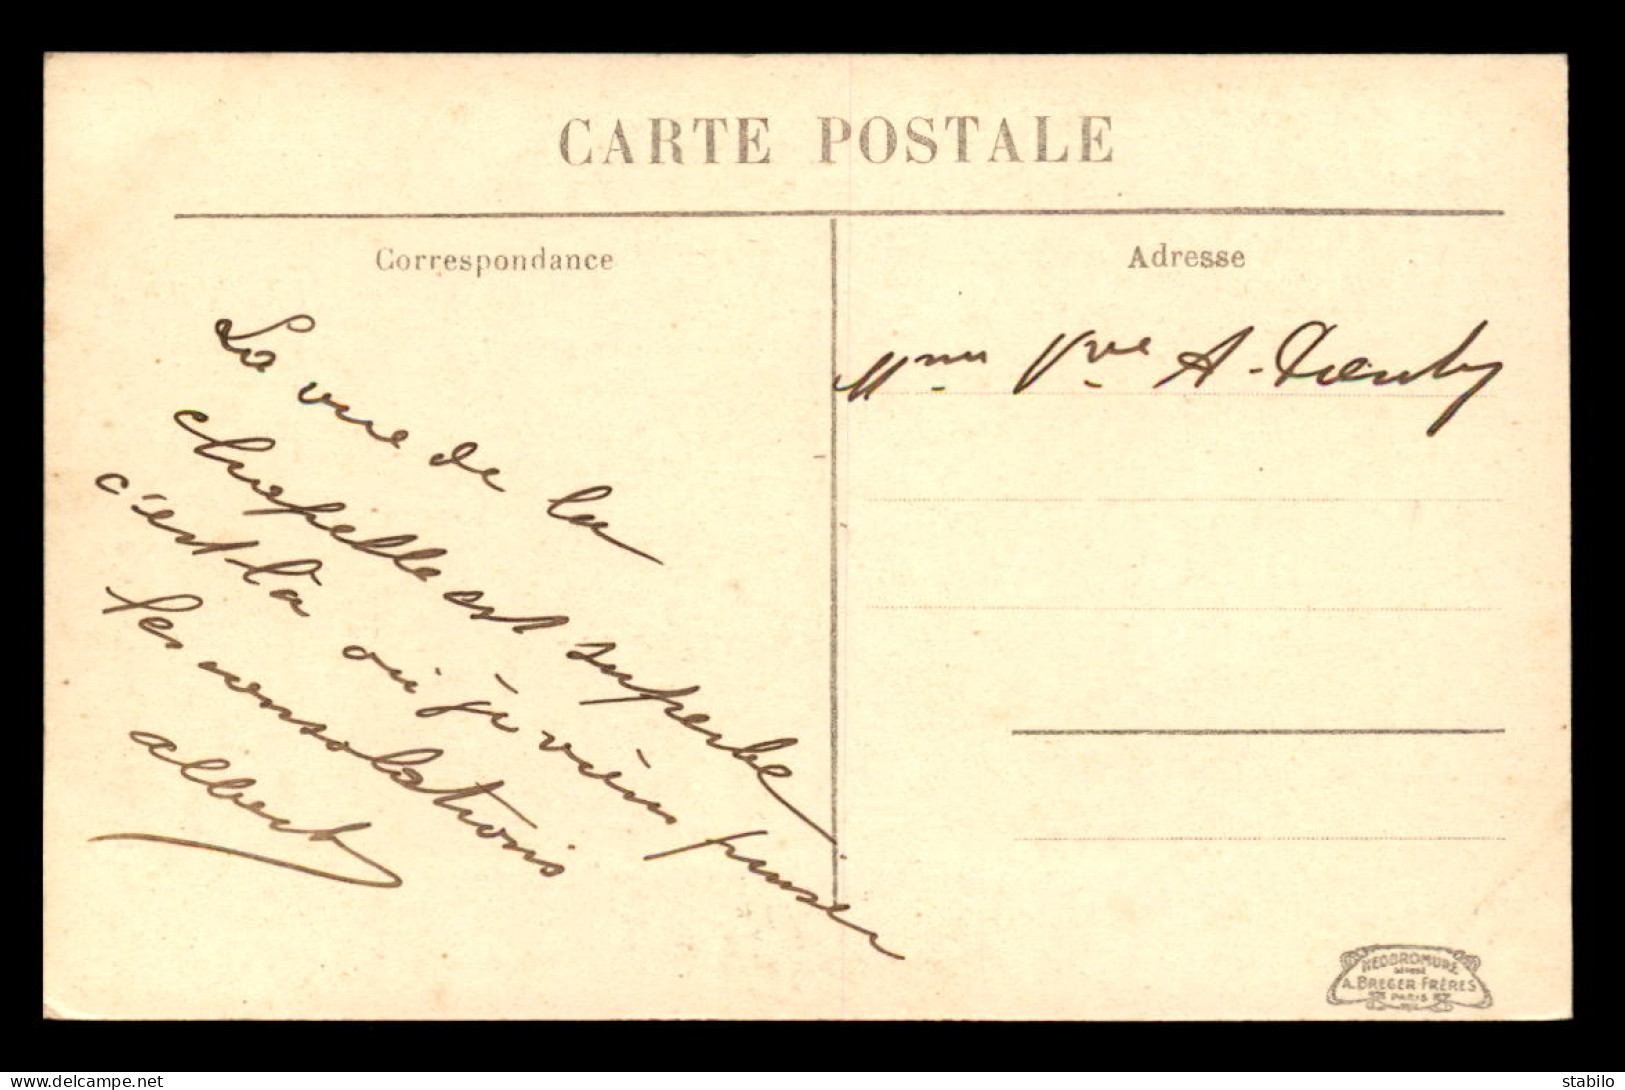 CARTE POSTALE
Correspondance
La vue de la
chapelle est superbe
c'est là où je viens puiser
les consolations
albert
Adresse
Mme Vve A.
NEOBROMURE
A. BREGER FRÈRES
PARIS
delcampe.net
stabilo